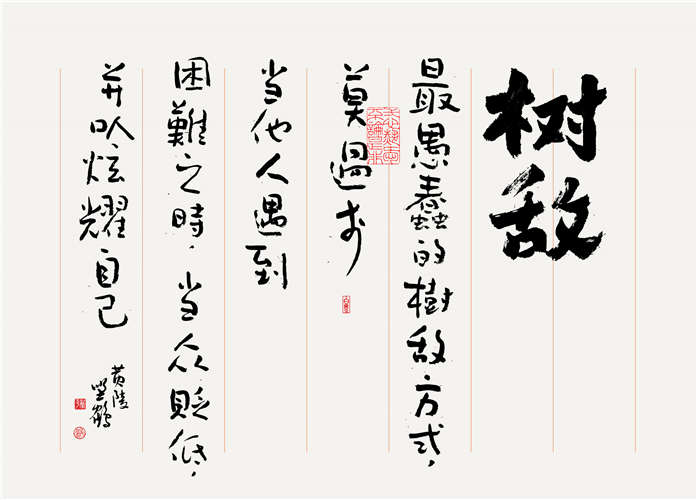 树敌
最愚蠢的樹敌方式，
莫過于
当他人遇到
困難之時，当众貶低，
并以炫耀自己
黄陵
野鹤